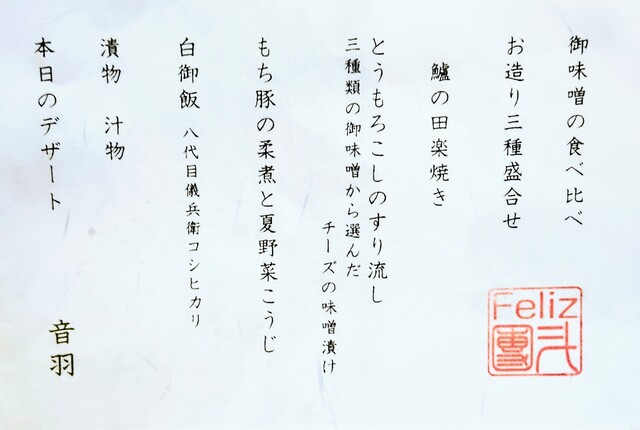 御味噌の食べ比べ
お造り三種盛合せ
鱸の田楽焼き
とうもろこしのすり流し
三種類の御味噌から選んだ
チーズの味噌漬け
もち豚の柔煮と夏野菜こうじ
白御飯 八代目儀兵衛コシヒカリ
漬物 汁物
本日のデザート
音羽
Feliz